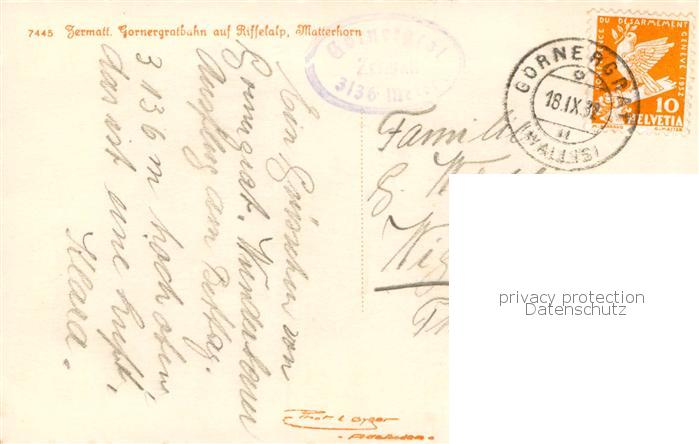 7445 Zermatt. Gornergratbahn auf Riffelalp, Matterhorn
Gornergrat
Zermatt
3136 M
CE DU DÉSARMEMENT GENÈVE 1932
10
HELVETIA
GORNERGRAT
18.IX.32
(WALLIS)
Ein Grüsschen vom
Gornergrat. Wunderbarer
Ausflug am Bettag.
3136 m hoch oben
das ist eine Luft.
Klara.
Familie
G.
privacy protection
Datenschutz
Phot. E. Gyger
Adelboden